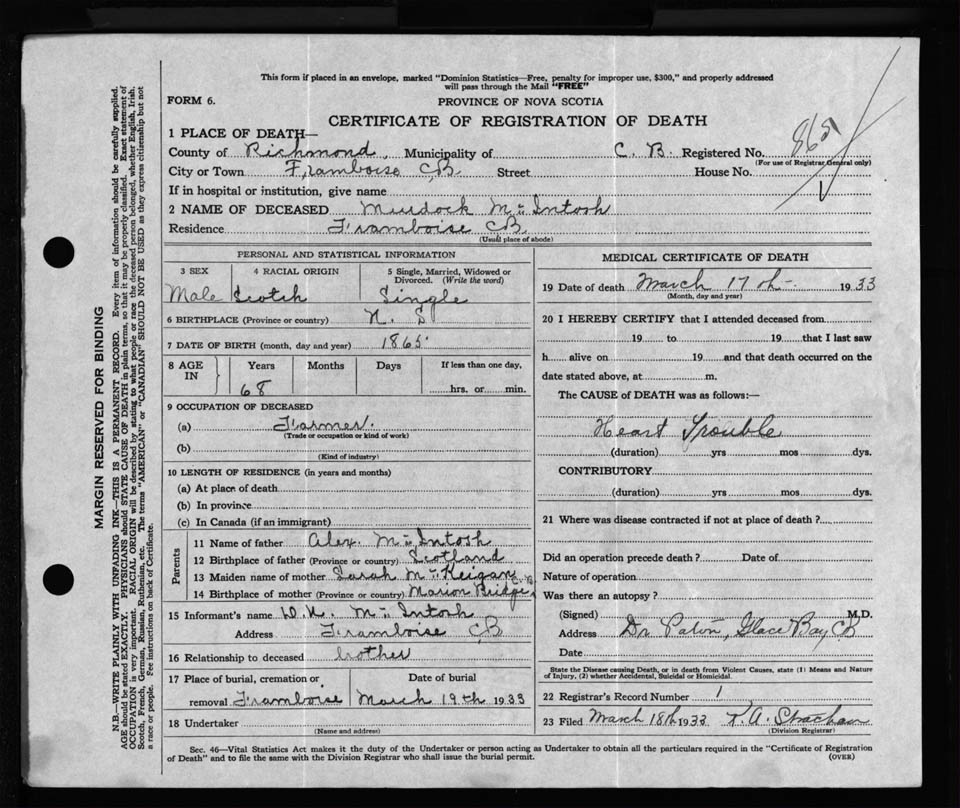 This form if placed in an envelope, marked "Dominion Statistics—Free, penalty for improper use, $300," and properly addressed
will pass through the Mail "FREE"
FORM 6.
PROVINCE OF NOVA SCOTIA
CERTIFICATE OF REGISTRATION OF DEATH
1 PLACE OF DEATH—
County of Richmond, Municipality of C. B. Registered No. 865
(For use of Registrar General only)
City or Town Framboise CB Street House No.
If in hospital or institution, give name
2 NAME OF DECEASED Murdock Mc Intosh
Residence Framboise CB
(Usual place of abode)
PERSONAL AND STATISTICAL INFORMATION
3 SEX
Male
4 RACIAL ORIGIN
Scotch
5 Single, Married, Widowed or
Divorced. (Write the word)
Single
6 BIRTHPLACE (Province or country) N. S
7 DATE OF BIRTH (month, day and year) 1865
8 AGE
IN
Years
68
Months
Days
If less than one day,
hrs. or min.
9 OCCUPATION OF DECEASED
(a) Farmer.
(Trade or occupation or kind of work)
(b)
(Kind of industry)
10 LENGTH OF RESIDENCE (in years and months)
(a) At place of death
(b) In province
(c) In Canada (if an immigrant)
Parents
11 Name of father Alex. Mc Intosh
12 Birthplace of father (Province or country) Scotland
13 Maiden name of mother Sarah Mc Keigan
14 Birthplace of mother (Province or country) Marion Bridge C. B.
15 Informant's name D. K. Mc Intosh
Address Framboise CB
16 Relationship to deceased brother
17 Place of burial, cremation or
removal Framboise
Date of burial
March 19th 1933
18 Undertaker
(Name and address)
MEDICAL CERTIFICATE OF DEATH
19 Date of death March 17th 1933
(Month, day and year)
20 I HEREBY CERTIFY that I attended deceased from
19 to 19 that I last saw
h alive on 19 and that death occurred on the
date stated above, at m.
The CAUSE of DEATH was as follows:—
Heart Trouble
(duration) yrs mos dys.
CONTRIBUTORY
(duration) yrs mos dys.
21 Where was disease contracted if not at place of death?
Did an operation precede death? Date of
Nature of operation
Was there an autopsy?
(Signed) M.D.
Address Dr Paton, Glace Bay CB
Date
State the Disease causing Death, or in death from Violent Causes, state (1) Means and Nature
of Injury, (2) whether Accidental, Suicidal or Homicidal.
22 Registrar's Record Number 1
23 Filed March 18th 1933 K. A. Strachan
(Division Registrar)
Sec. 46—Vital Statistics Act makes it the duty of the Undertaker or person acting as Undertaker to obtain all the particulars required in the "Certificate of Registration
of Death" and to file the same with the Division Registrar who shall issue the burial permit.
(OVER)
MARGIN RESERVED FOR BINDING
N.B.—WRITE PLAINLY WITH UNFADING INK—THIS IS A PERMANENT RECORD. Every item of information should be carefully supplied.
AGE should be stated EXACTLY. PHYSICIANS should STATE CAUSE OF DEATH in plain terms, so that it may be properly classified. Exact statement of
OCCUPATION is very important. RACIAL ORIGIN will be described by stating to what people or race the deceased person belonged, whether English, Irish,
Scotch, French, German, Russian, Ruthenian, etc. The terms "AMERICAN" or "CANADIAN" SHOULD NOT BE USED as they express citizenship but not
a race or people. Fee instructions on back of Certificate.